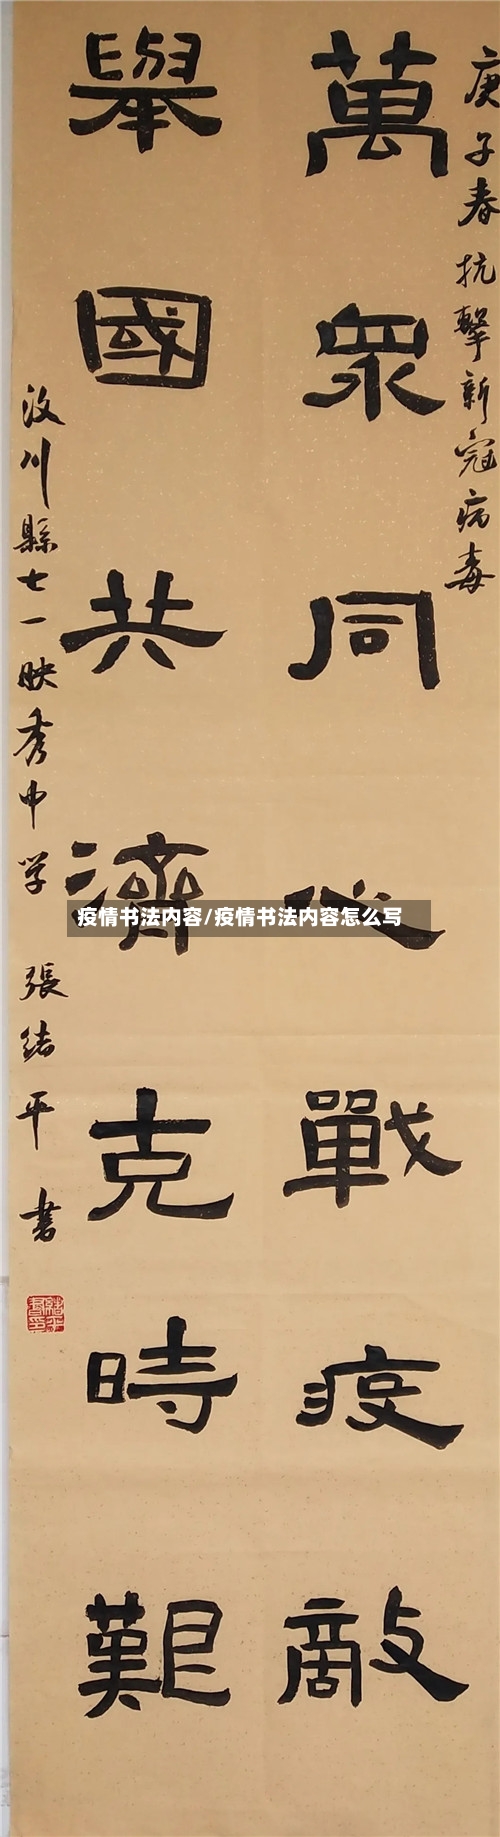 庚子春抗擊新冠病毒
萬眾同心戰疫敵
舉國共濟克時艱
汶川縣七一映秀中学 張緒平書
疫情书法内容/疫情书法内容怎么写